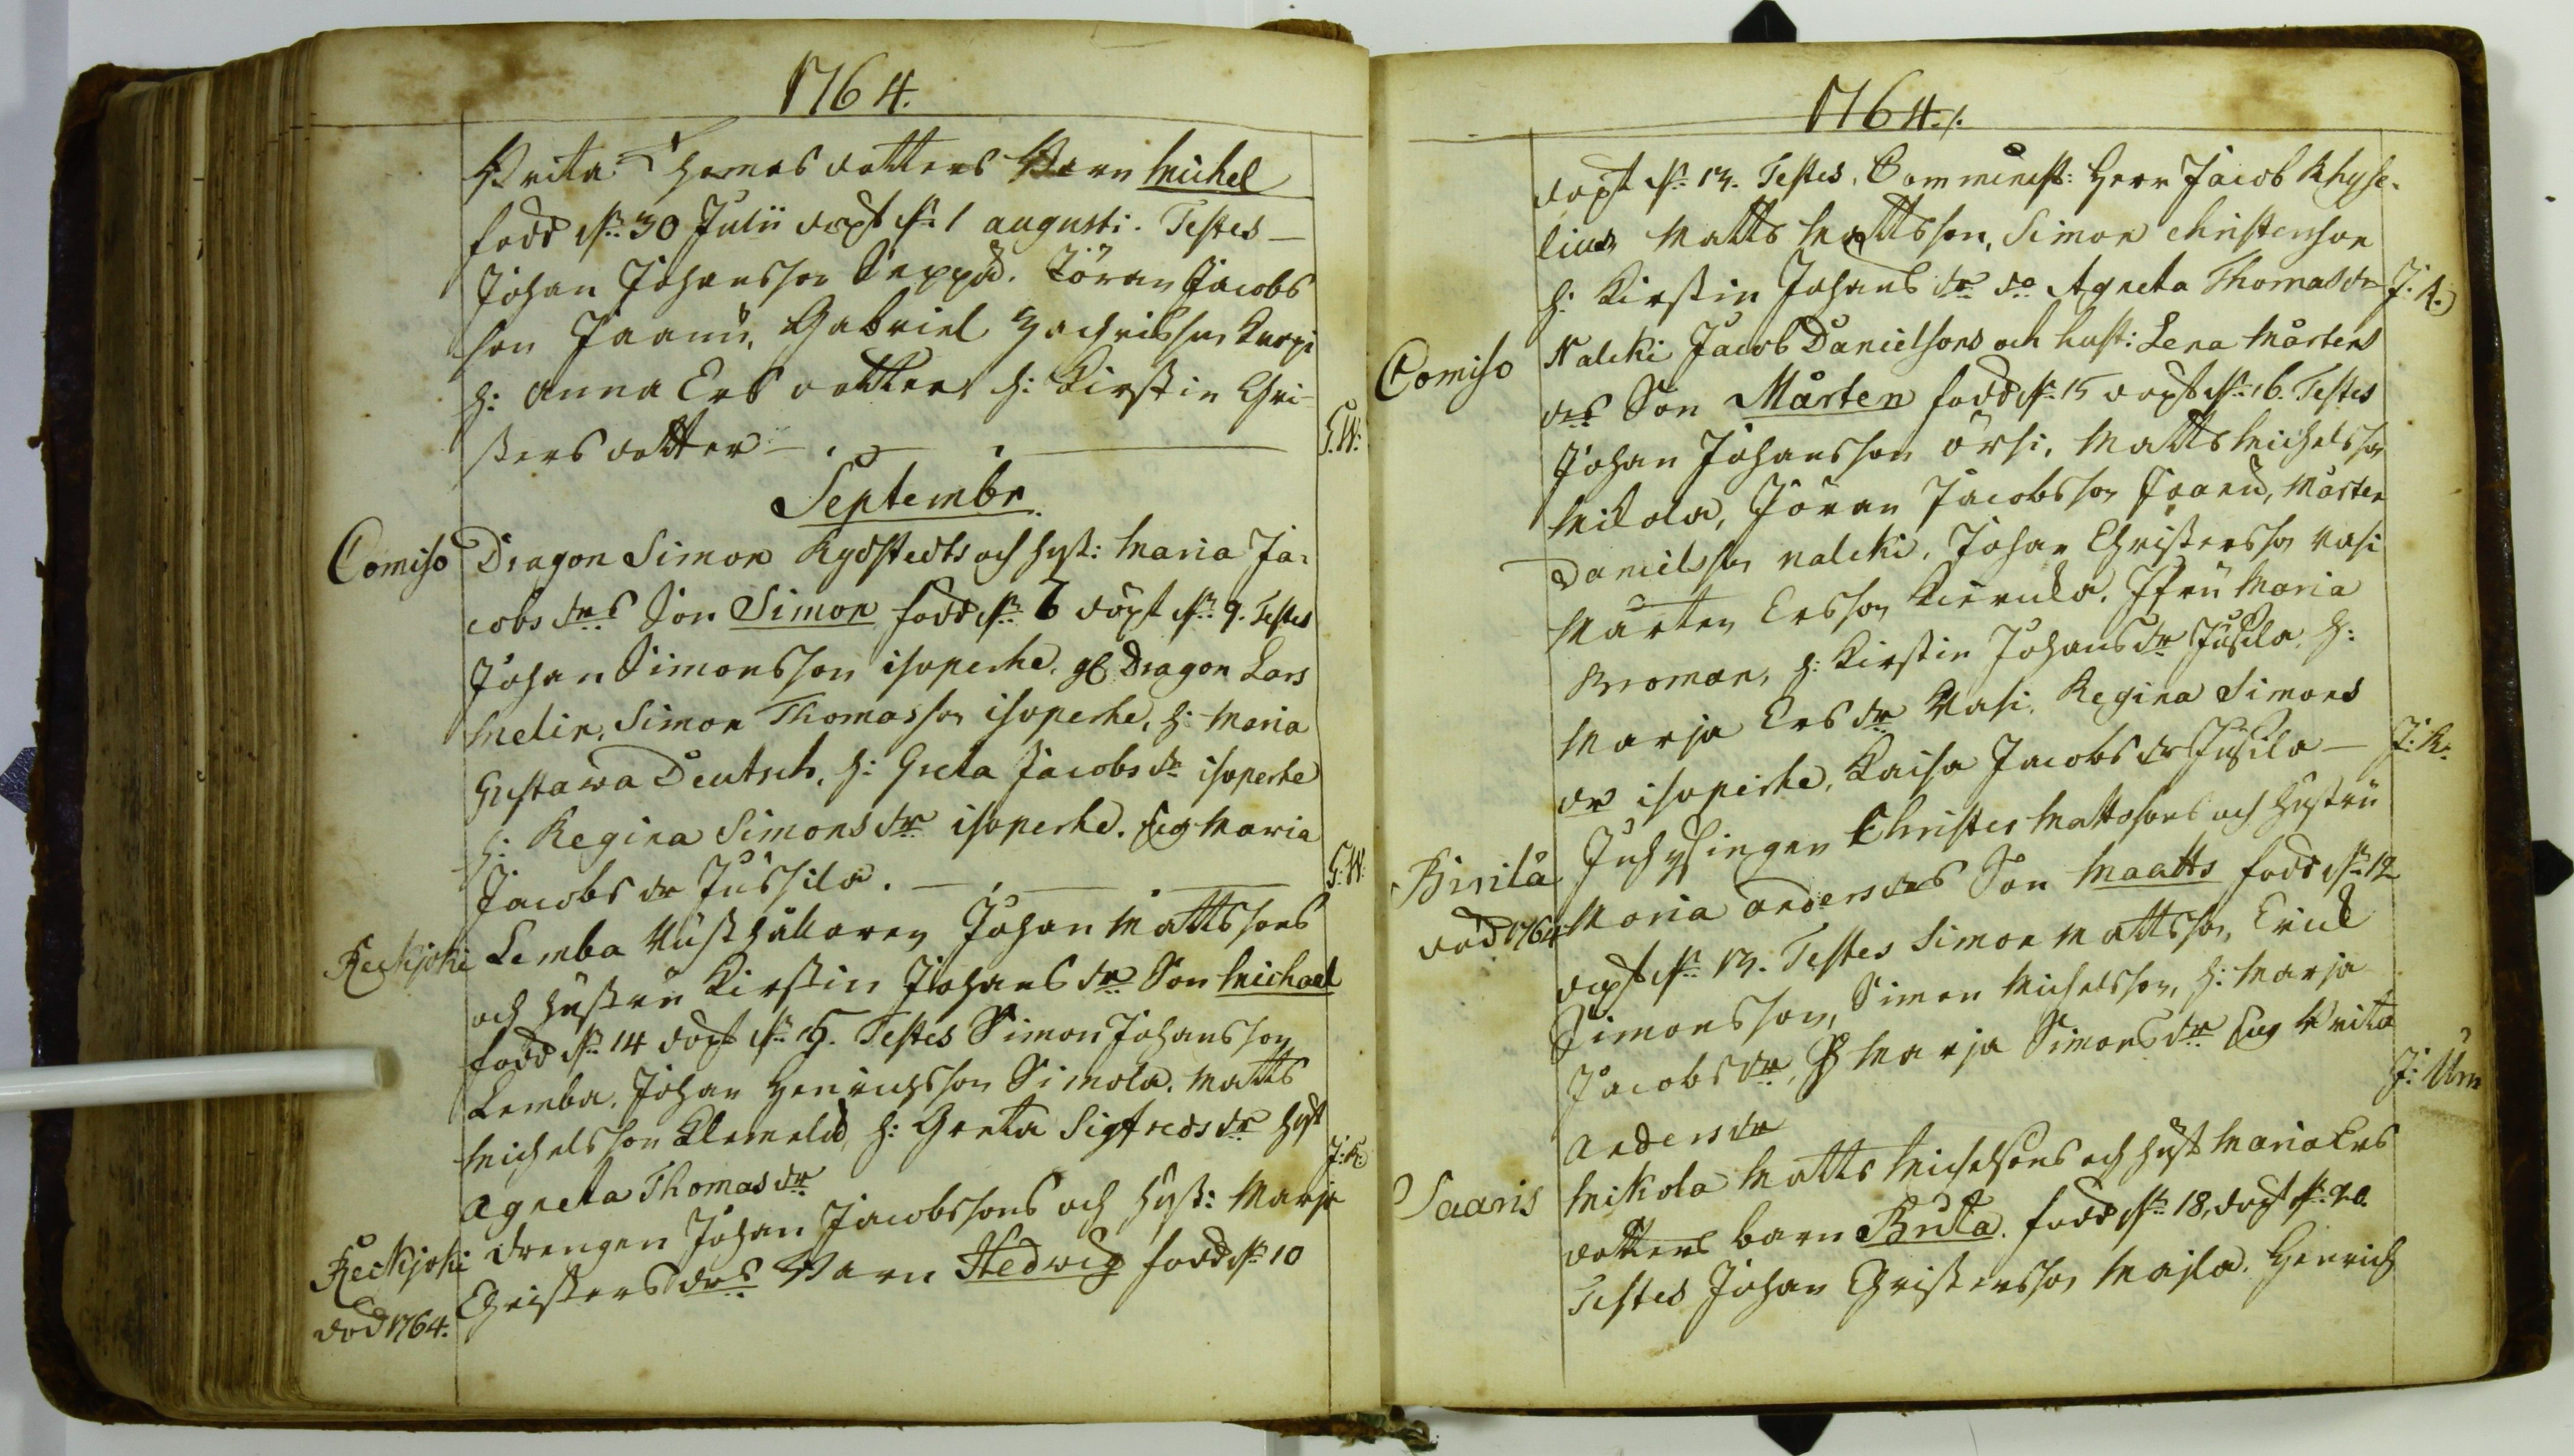 1764.
Brita Thomas dotters Barn Michel
född d. 30 Julii döpt d. 1 augusti. Testes
Johan Johansson Seppä. Jöran Jacobs
son Jaanu, Gabriel Zachrisson Karpi
h: Anna Ers dotter h: Kirstin Chri-
sters dotter
G.W:
Septembr.
Comiso Dragon Simon Rydstedts och hust: Maria Ja-
cobs drs Son Simon född d. 6 döpt d. 9. Testes
Johan Simonsson isoperhe. gl Dragon Lars
Melin, Simon Thomasson isoperhe, h: Maria
Gustawa Deutsch, h: Greta Jacobs dr isoperhe
h: Regina Simons dr isoperhe. pig Maria
Jacobs dr Jussila.
G.W.
Keckjoki Lemba Rusthållaren Johan Mattssons
och hustru Kirstin Johans dr Son Michael
född d. 14 döpt d. 15. Testes Simon Johansson
Lemba, Johan Henrichsson Simola. Matts
Michelsson Klemelä, h: Greta Sigfreds dr hust
Agneta Thomas dr
J:K:
Keckjoki drengen Johan Jacobssons och Hust: Marja
död 1764. Christers drs Barn Hedwig född d. 10
1764.
döpt d. 13. Testes. Comminist: Herr Jacob Rhyse-
lius Matts Mattsson, Simon Christersson
h: Kirstin Johans dr do Agneta Thomas dr
J:K.
Comiso Nalcki Jacob Danielsons och hust: Lena Mårtens
drs Son Mårten född d. 15 döpt d. 16. Testes
Johan Johansson örsi, Matts Michelsson
Mikola, Jöran Jacobsson Jaanu, Mårten
Danielsson nalcki. Johan Christersson Wasi
Mårten Ersson Kierikla. Jfru Maria
Broman, h: Kirstin Johans dr Jussila, h:
Marja Ers dr Wasi. Regina Simons
dr isoperhe, Kaisa Jacobs dr Jussila
J:K.
Pirilä Inhysingen Christer Mattssons och Hustru
död 1764 Maria anders drs Son Maatts född d. 12
döpt d. 13. Testes Simon Mattsson, Erick
Simonsson, Simon Michelsson, h: Marja
Jacobs dr, h Marja Simons dr pig Brita
Anders dr
J: Um
Saaris Mikola Matts Michelsons och hust Maria Ers
dotters barn Brita. född d. 18, döpt d. 20.
Testes Johan Christersson Majla. Henrich